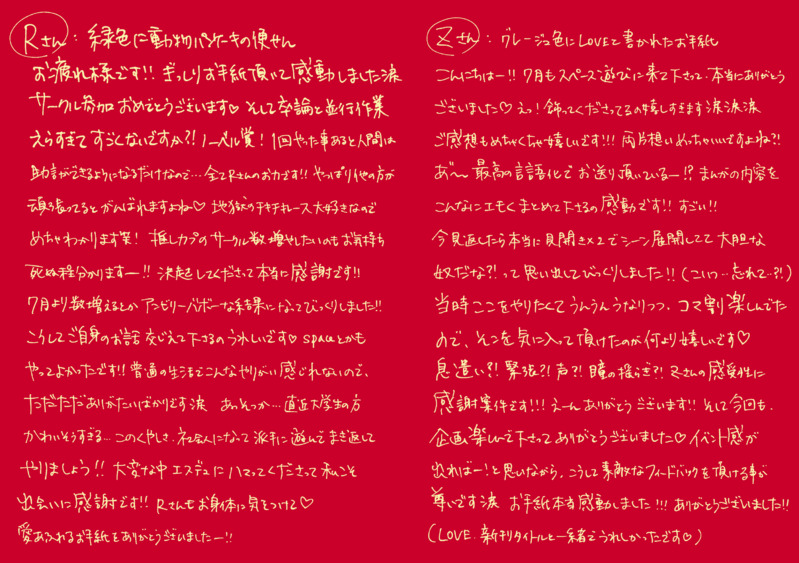 Rさん：緑色に動物パンケーキの便せん
お疲れ様です!! ぎっしりお手紙頂いて感動しました涙
サークル参加おめでとうございます♡ そして卒論と並行作業
えらすぎてすごくないですか?! ノーベル賞! 1回やった事あると人間は
助言ができるようになるだけなので… 全てRさんのお力です!! やっぱり他の方が
頑張ってるとがんばれますよね♡ 地獄のチキチキレース大好きなので
めちゃわかります笑! 推しカプのサークル数増やしたいのもお気持ち
死ぬ程分かりますー!! 決起してくださって本当に感謝です!!
7月より数増えるとかアンビリーバボーな結果になってびっくりしました!!
こうしてご自身のお話交じえて下さるのうれしいです♡ spaceとかも
やってよかったです!! 普通の生活でこんなやりがい感じれないので、
ただただありがたいばかりです涙 あっそっか… 直近大学生の方
かわいそうすぎる… このくやしさ、社会人になって派手に遊んでまき返して
やりましょう!! 大変な中エスデュにハマってくださって私こそ
出会いに感謝です!! Rさんもお身体に気をつけて♡
愛あふれるお手紙をありがとうございましたー!!
Zさん：グレージュ色にLOVEて書かれたお手紙
こんにちはー!! 7月もスペース遊びに来て下さって、本当にありがとう
ございました♡ えっ! 飾ってくださってるの嬉しすぎます涙涙涙
ご感想もめちゃくちゃ嬉しいです!!! 両片想いめっちゃいいですよね?!
あ〜 最高の言語化でお送り頂いているー!? まんがの内容を
こんなにエモくまとめて下さるの感動です!! すごい!!
今見返したら本当に見開き×2でシーン展開してて大胆な
奴だな?! って思い出してびっくりしました!! (こいつ…忘れて…?!)
当時ここをやりたくてうんうんうなりつつ、コマ割楽しんでた
ので、そこを気に入って頂けたのが何より嬉しいです♡
息遣い?! 緊張?! 声?! 瞳の揺らぎ?! Zさんの感受性に
感謝案件です!!! えーんありがとうございます!! そして今回も、
企画楽しんで下さってありがとうございました♡ イベント感が
出ればー!と思いながら、こうして素敵なフィードバックを頂ける事が
尊いです涙 お手紙本当感動しました!!! ありがとうございました!!
(LOVE、新刊タイトルと一緒でうれしかったです♡)